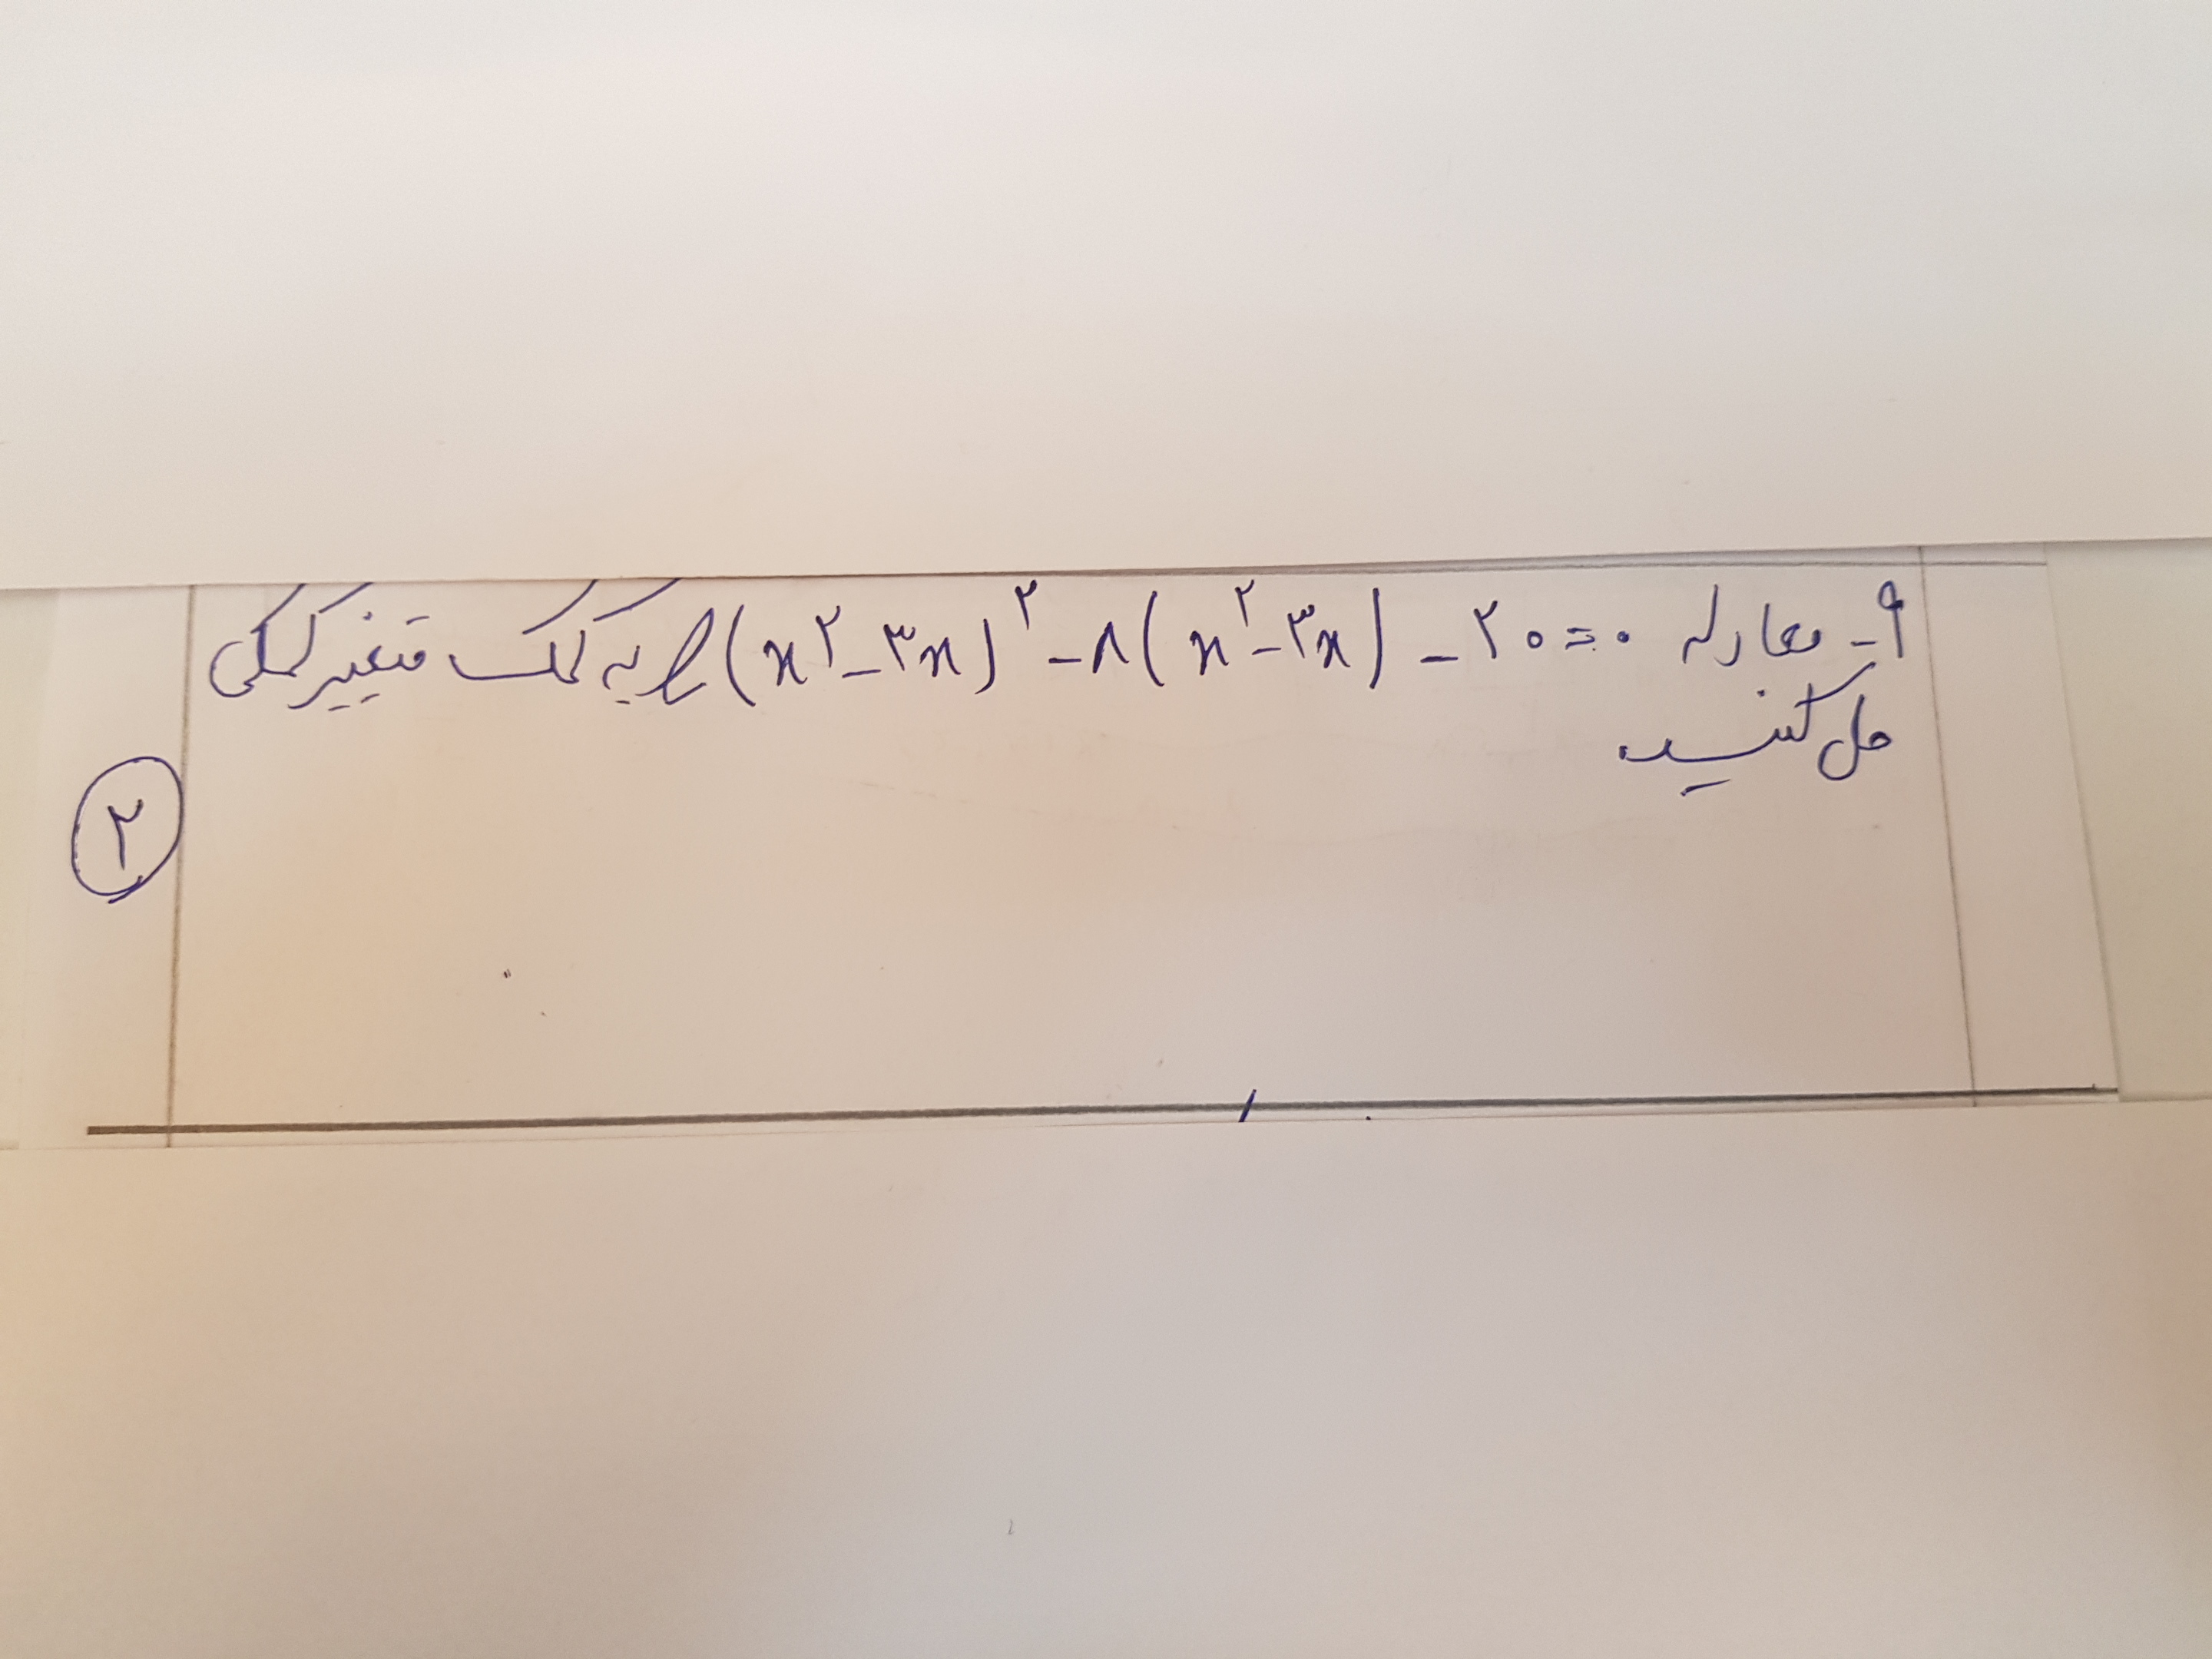 ۹- معادله (x۲-۳x)۲ -۸(x۲-۳x) -۲۰=۰ را به کمک متغیر کمکی
حل کنید
۲